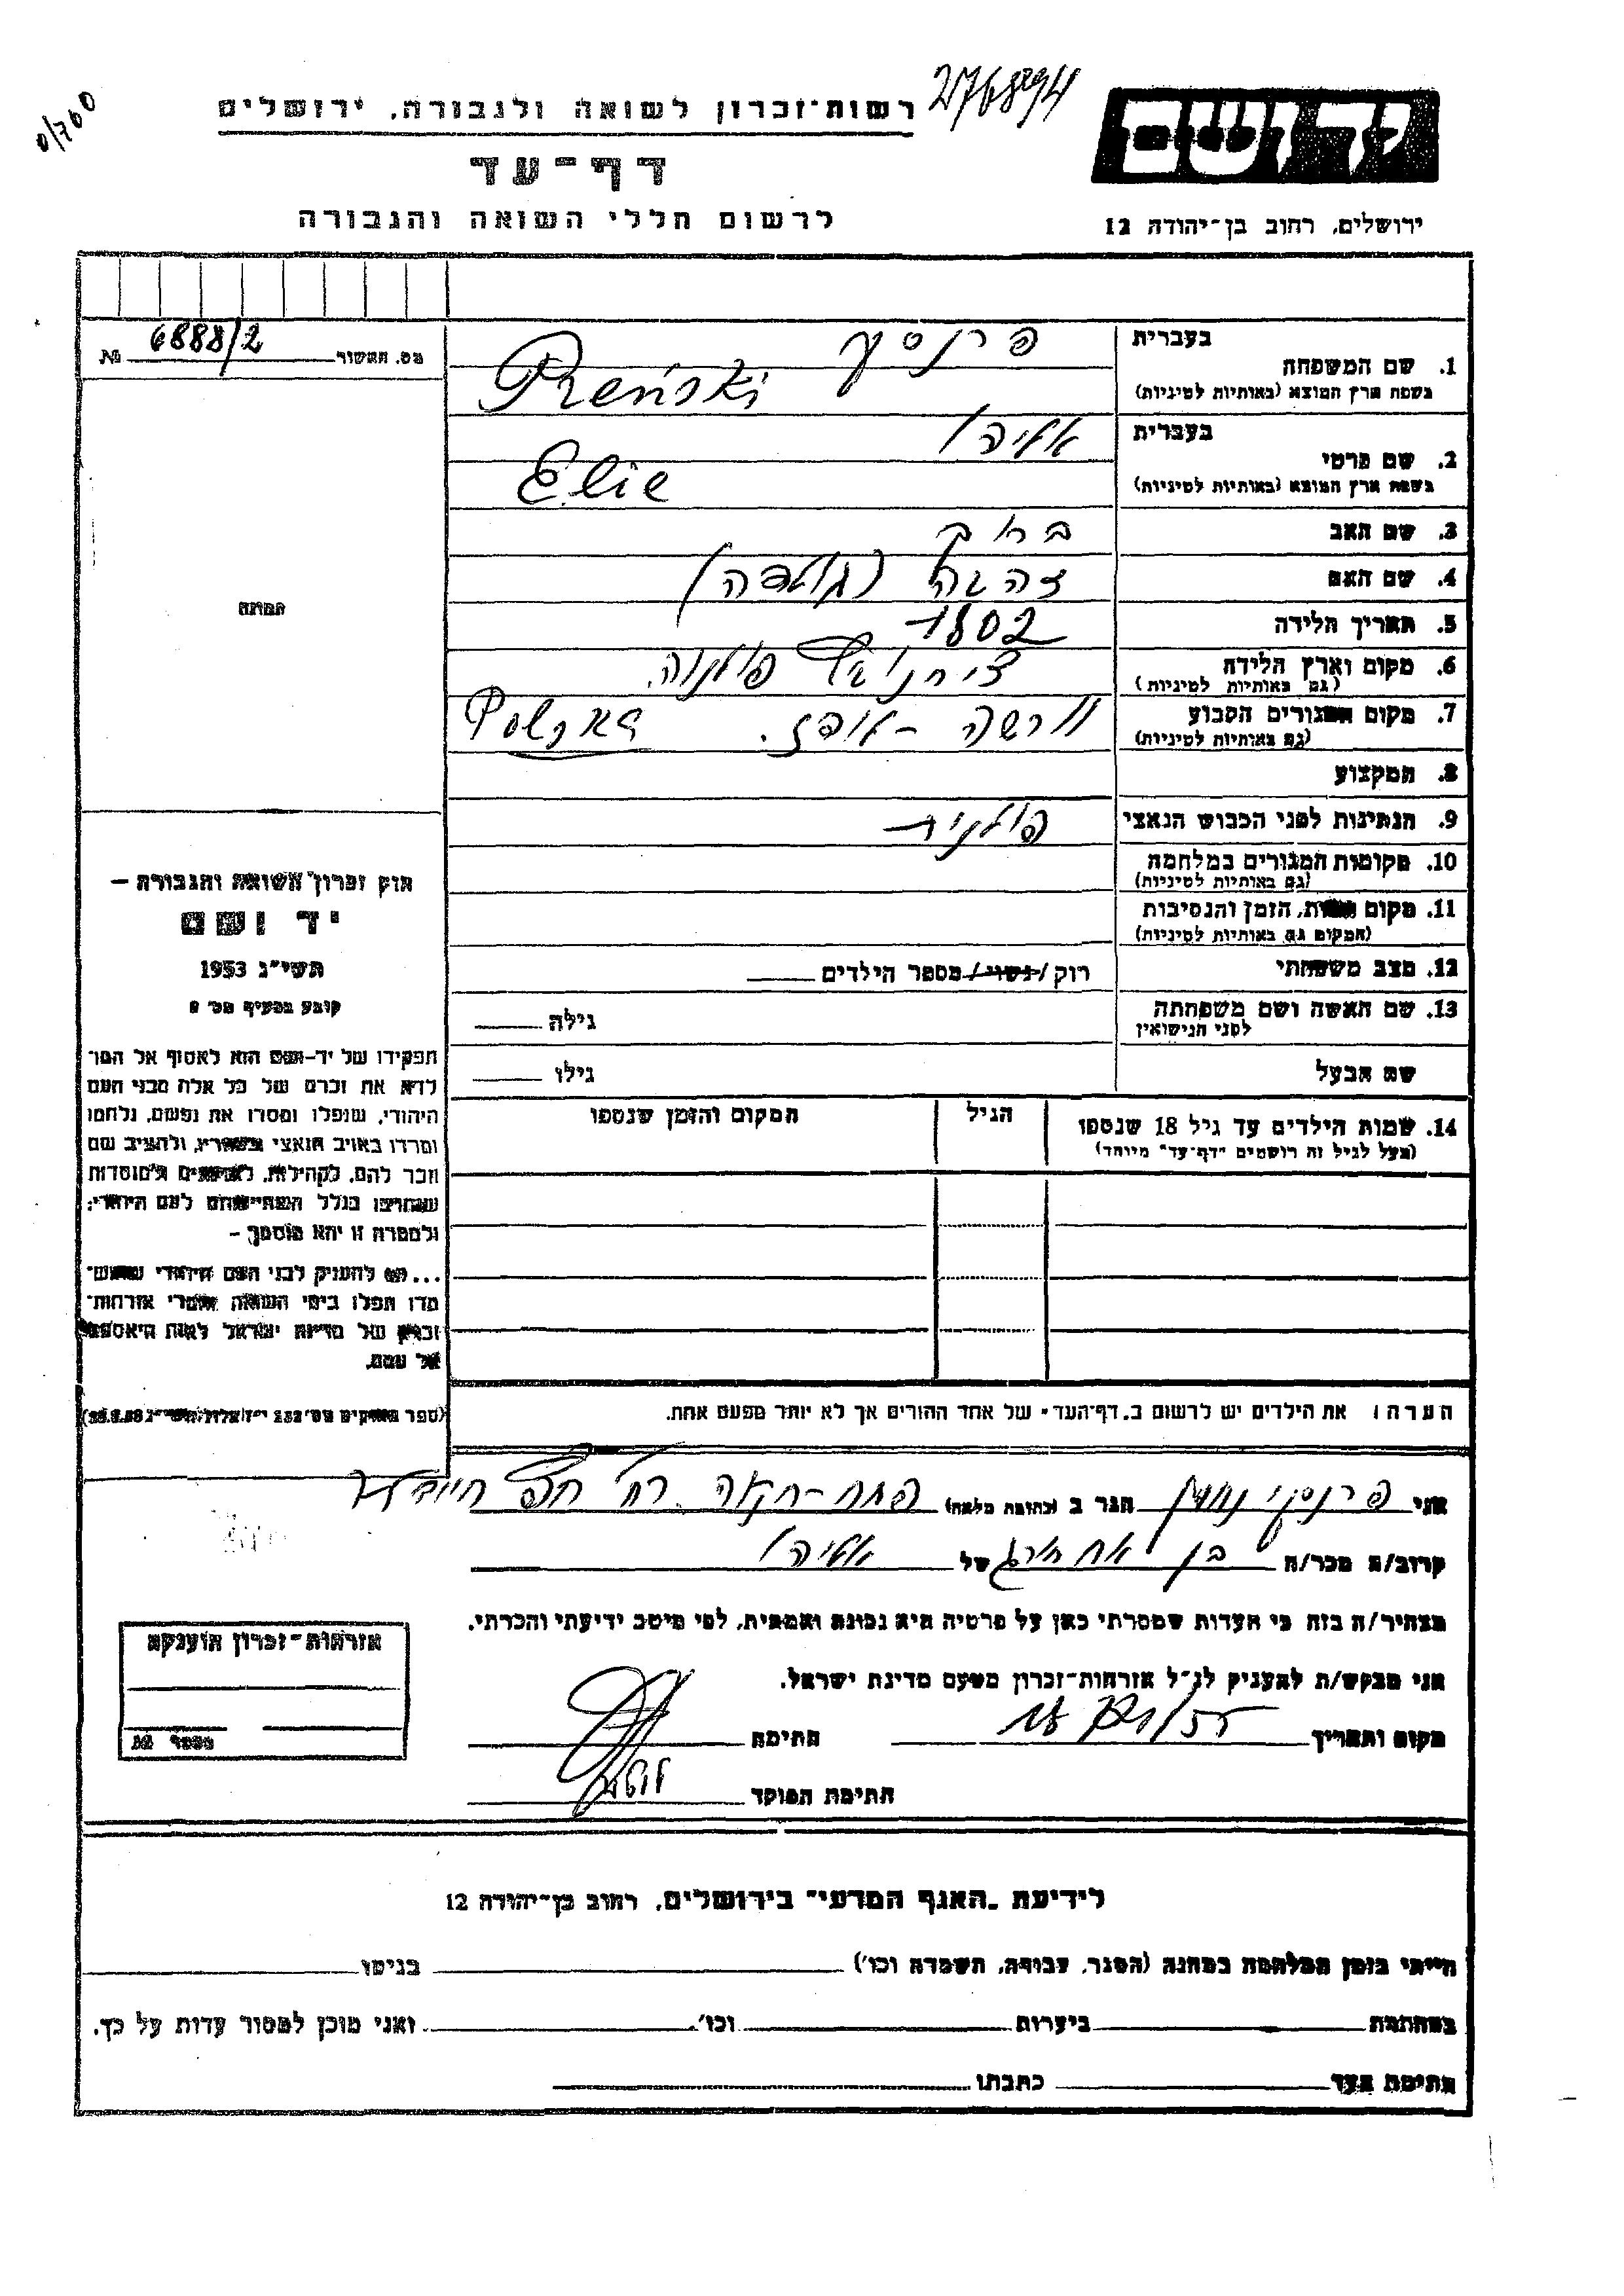 0/760
276894
יד ושם
רשות־זכרון לשואה ולגבורה, ירושלים
דף־עד
לרשום חללי השואה והגבורה
ירושלים, רחוב בן־יהודה 12
מס. האשור 6888/2 №
התמונה
חוק זכרון השואה והגבורה —
יד ושם
תשי"ג 1953
קובע בסעיף מס' 2
תפקידו של יד-ושם הוא לאסוף אל המו־
לדת את זכרם של כל אלה מבני העם
היהודי, שנפלו ומסרו את נפשם, נלחמו
ומרדו באויב הנאצי ובעוזריו, ולהציב שם
וזכר להם, לקהילות, לארגונים ולמוסדות
שנחרבו בגלל השתייכותם לעם היהודי;
ולמטרה זו יהא מוסמך —
...(4) להעניק לבני העם היהודי שהוש־
מדו ונפלו בימי השואה והמרי אזרחות־
זכרון של מדינת ישראל לאות היאספם
אל עמם.
1. שם המשפחה
בעברית פרנסקי
בשפת ארץ המוצא (באותיות לטיניות) Preński
2. שם פרטי
בעברית אליהו
בשפת ארץ המוצא (באותיות לטיניות) Elie
3. שם האב ברוך
4. שם האם זהבה (גולדה)
5. תאריך הלידה 1802
6. מקום וארץ הלידה פולניה.
(גם באותיות לטיניות)
7. מקום המגורים הקבוע וורשה - לודז. Polska
(גם באותיות לטיניות)
8. המקצוע
9. הנתינות לפני הכבוש הנאצי פולנית
10. מקומות המגורים במלחמה
(גם באותיות לטיניות)
11. מקום המות, הזמן והנסיבות
(המקום גם באותיות לטיניות)
12. מצב משפחתי רוק / נשוי / מספר הילדים
13. שם האשה ושם משפחתה גילה
לפני הנישואין
שם הבעל גילו
14. שמות הילדים עד גיל 18 שנספו הגיל המקום והזמן שנספו
(מעל לגיל זה רושמים "דף־עד" מיוחד)
הערה: את הילדים יש לרשום ב„דף־העד" של אחד ההורים אך לא יותר מפעם אחת.
אני פרנסקי הגר ב (כתובת מלאה) פתח-תקוה רח'
קרוב/ה מכר/ה בן של אליהו
מצהיר/ה בזה כי העדות שמסרתי כאן על פרטיה היא נכונה ואמתית, לפי מיטב ידיעתי והכרתי.
אני מבקש/ת להעניק לנ"ל אזרחות־זכרון מטעם מדינת ישראל.
מקום ותאריך חתימה
חתימת הפוקד
אזרחות־זכרון הוענקה
מספר №
לידיעת „האגף המדעי" בירושלים, רחוב בן־יהודה 12
הייתי בזמן המלחמה במחנה (הסגר, עבודה, השמדה וכו') בגיטו
במחתרת ביערות וכו'. ואני מוכן למסור עדות על כך.
חתימת העד כתבתו